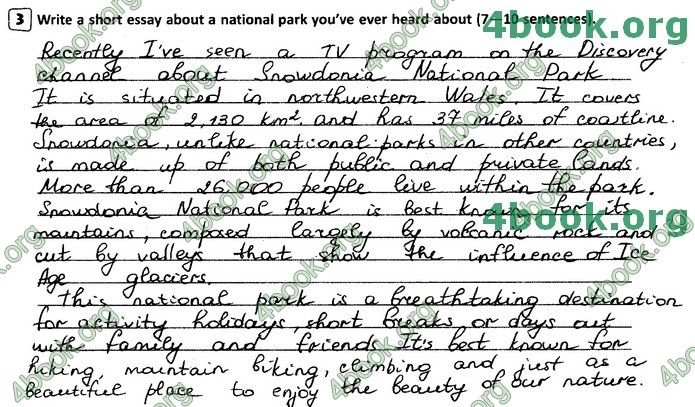 3 Write a short essay about a national park you've ever heard about (7–10 sentences).
Recently I've seen a TV program on the Discovery
channel about Snowdonia National Park
It is situated in northwestern Wales. It covers
the area of 2,130 km² and has 37 miles of coastline.
Snowdonia, unlike national parks in other countries,
is made up of both public and private lands.
More than 26,000 people live within the park.
Snowdonia National Park is best known for its
mountains, composed largely by volcanic rock and
cut by valleys that show the influence of Ice
Age glaciers.
This national park is a breathtaking destination
for activity holidays, short breaks or days out
with family and friends. It's best known for
hiking, mountain biking, climbing and just as a
beautiful place to enjoy the beauty of our nature.
4book.org
4book.org
4book.org
4book.org
4book.org
4book.org
4book.org